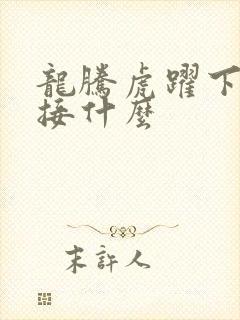 龍騰虎躍下
接什麼
末許人